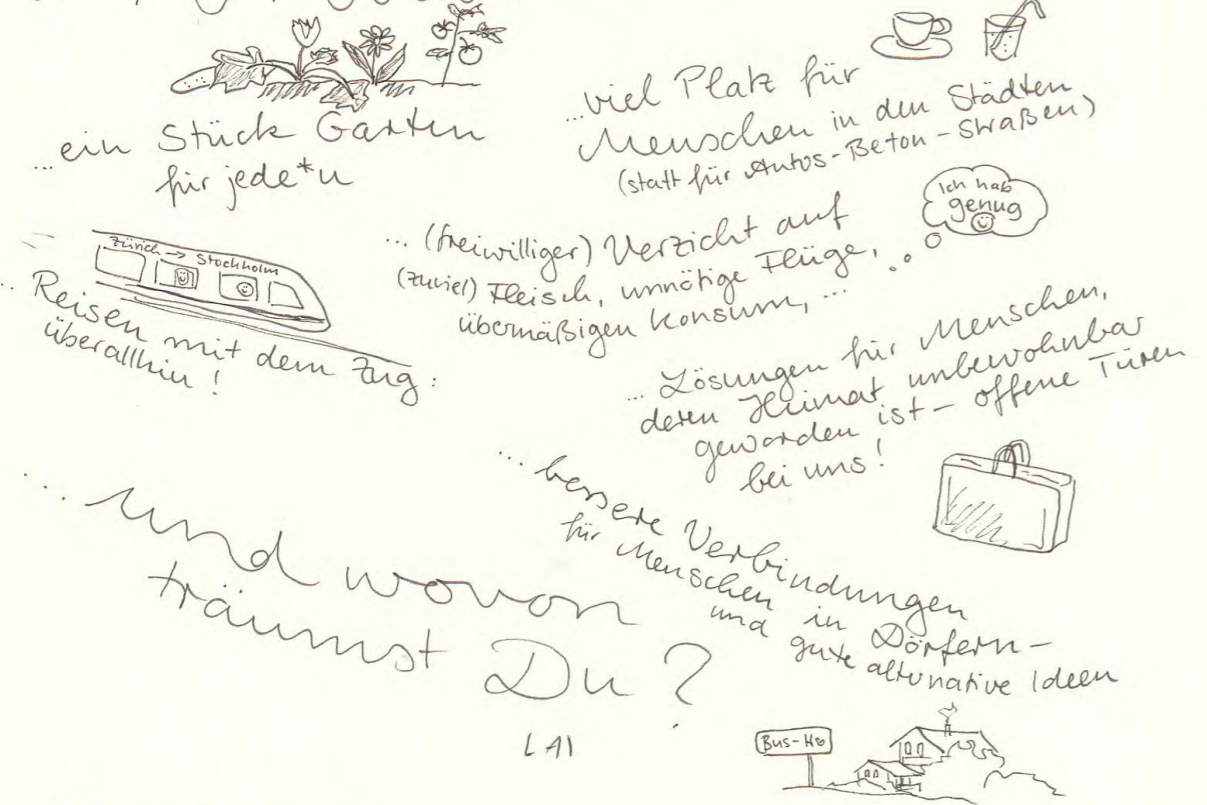 ...ein Stück Garten
für jede*n
...viel Platz für
Menschen in den Städten
(statt für Autos-Beton-Straßen)
Zürich → Stockholm
... Reisen mit dem Zug:
überallhin!
... (freiwilliger) Verzicht auf
(zuviel) Fleisch, unnötige Flüge,
übermäßigen Konsum, ...
Ich hab
genug
... Lösungen für Menschen,
deren Heimat unbewohnbar
geworden ist – offene Türen
bei uns!
... bessere Verbindungen
für Menschen in Dörfern –
und gute alternative Ideen
... und wovon
träumst Du?
Bus-